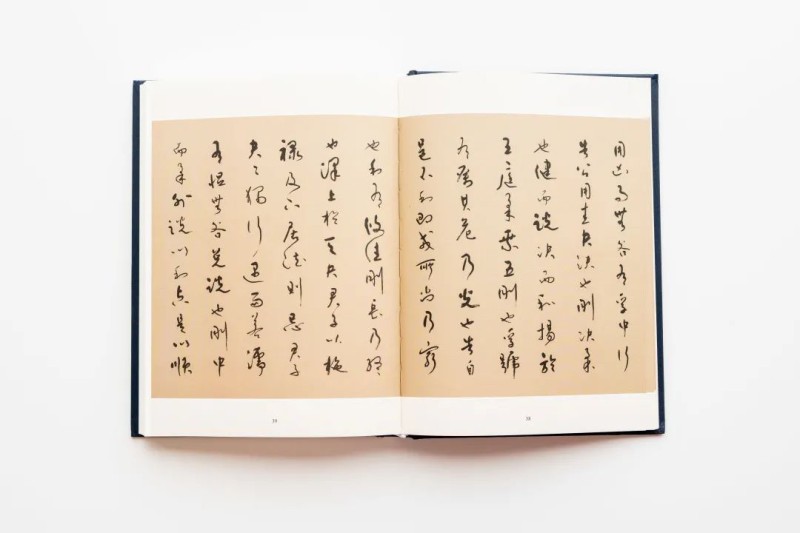 用凶事無咎有孚中行
告公用圭夬決也剛決柔
也健而說決而和揚於
王庭柔乘五剛也孚號
有厲其危乃光也告自
邑不利即戎所尚乃窮
也利有攸往剛長乃終
也澤上於天夬君子以施
祿及下居德則忌君子
夬々獨行遇雨若濡
有慍無咎兌說也剛中
而柔外說以利貞是以順